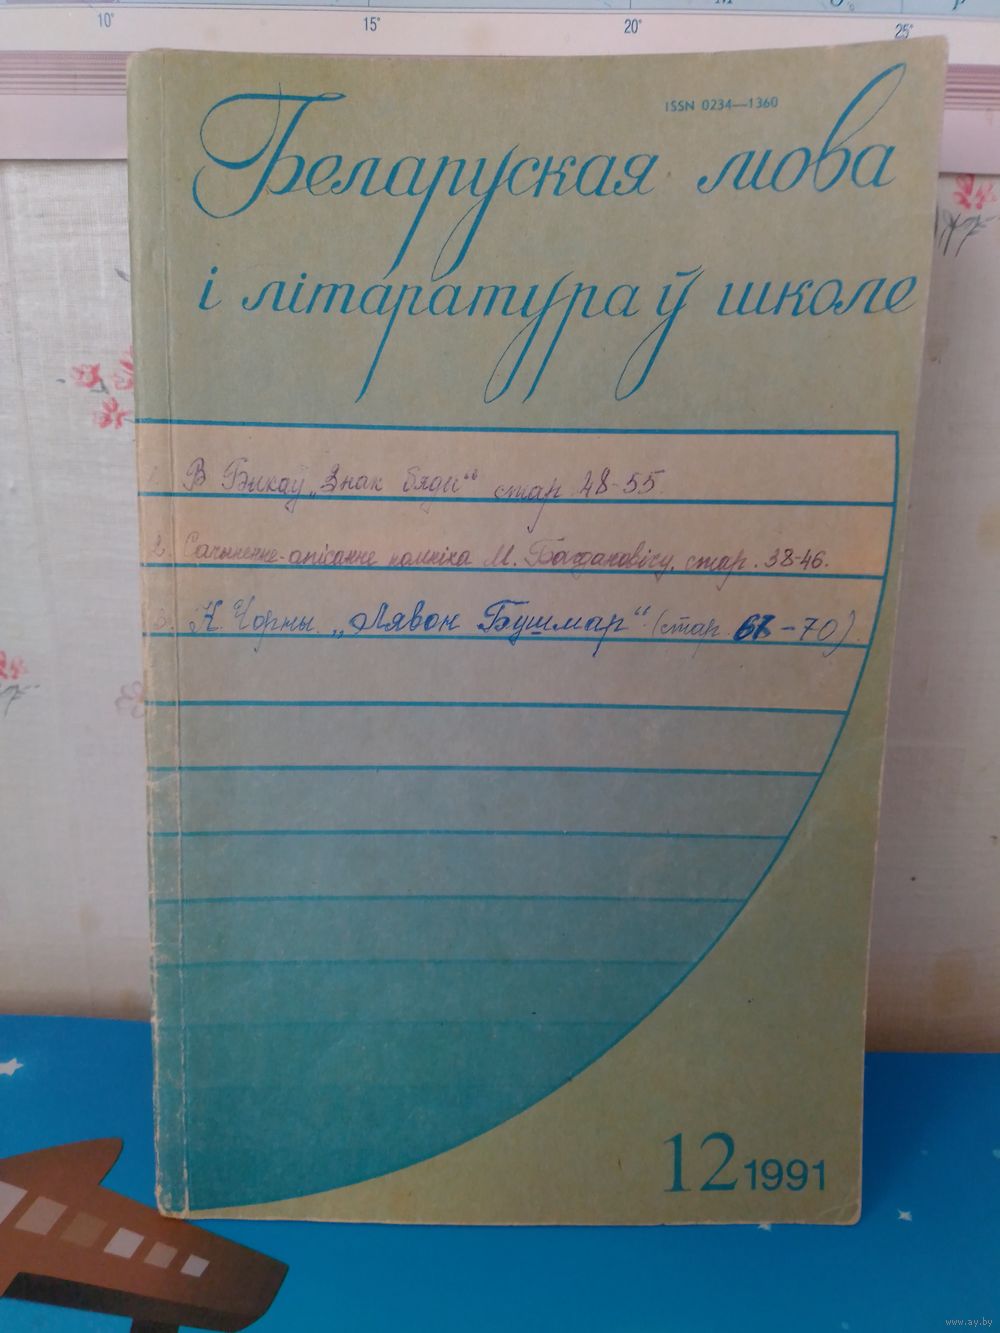 10° 15° 20° 25°
ISSN 0234—1360
Беларуская мова
і літаратура ў школе
1. В Быкаў „Знак бяды“ стар 48-55
2. Сачыненне-апісанне помніка М. Багдановічу, стар. 38-46.
3. К. Чорны. „Лявон Бушмар“ (стар -70).
12 1991
www.ay.by